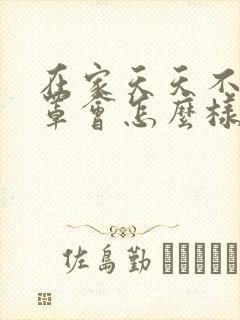 在家天天不
罩會怎麼樣
佐島勤